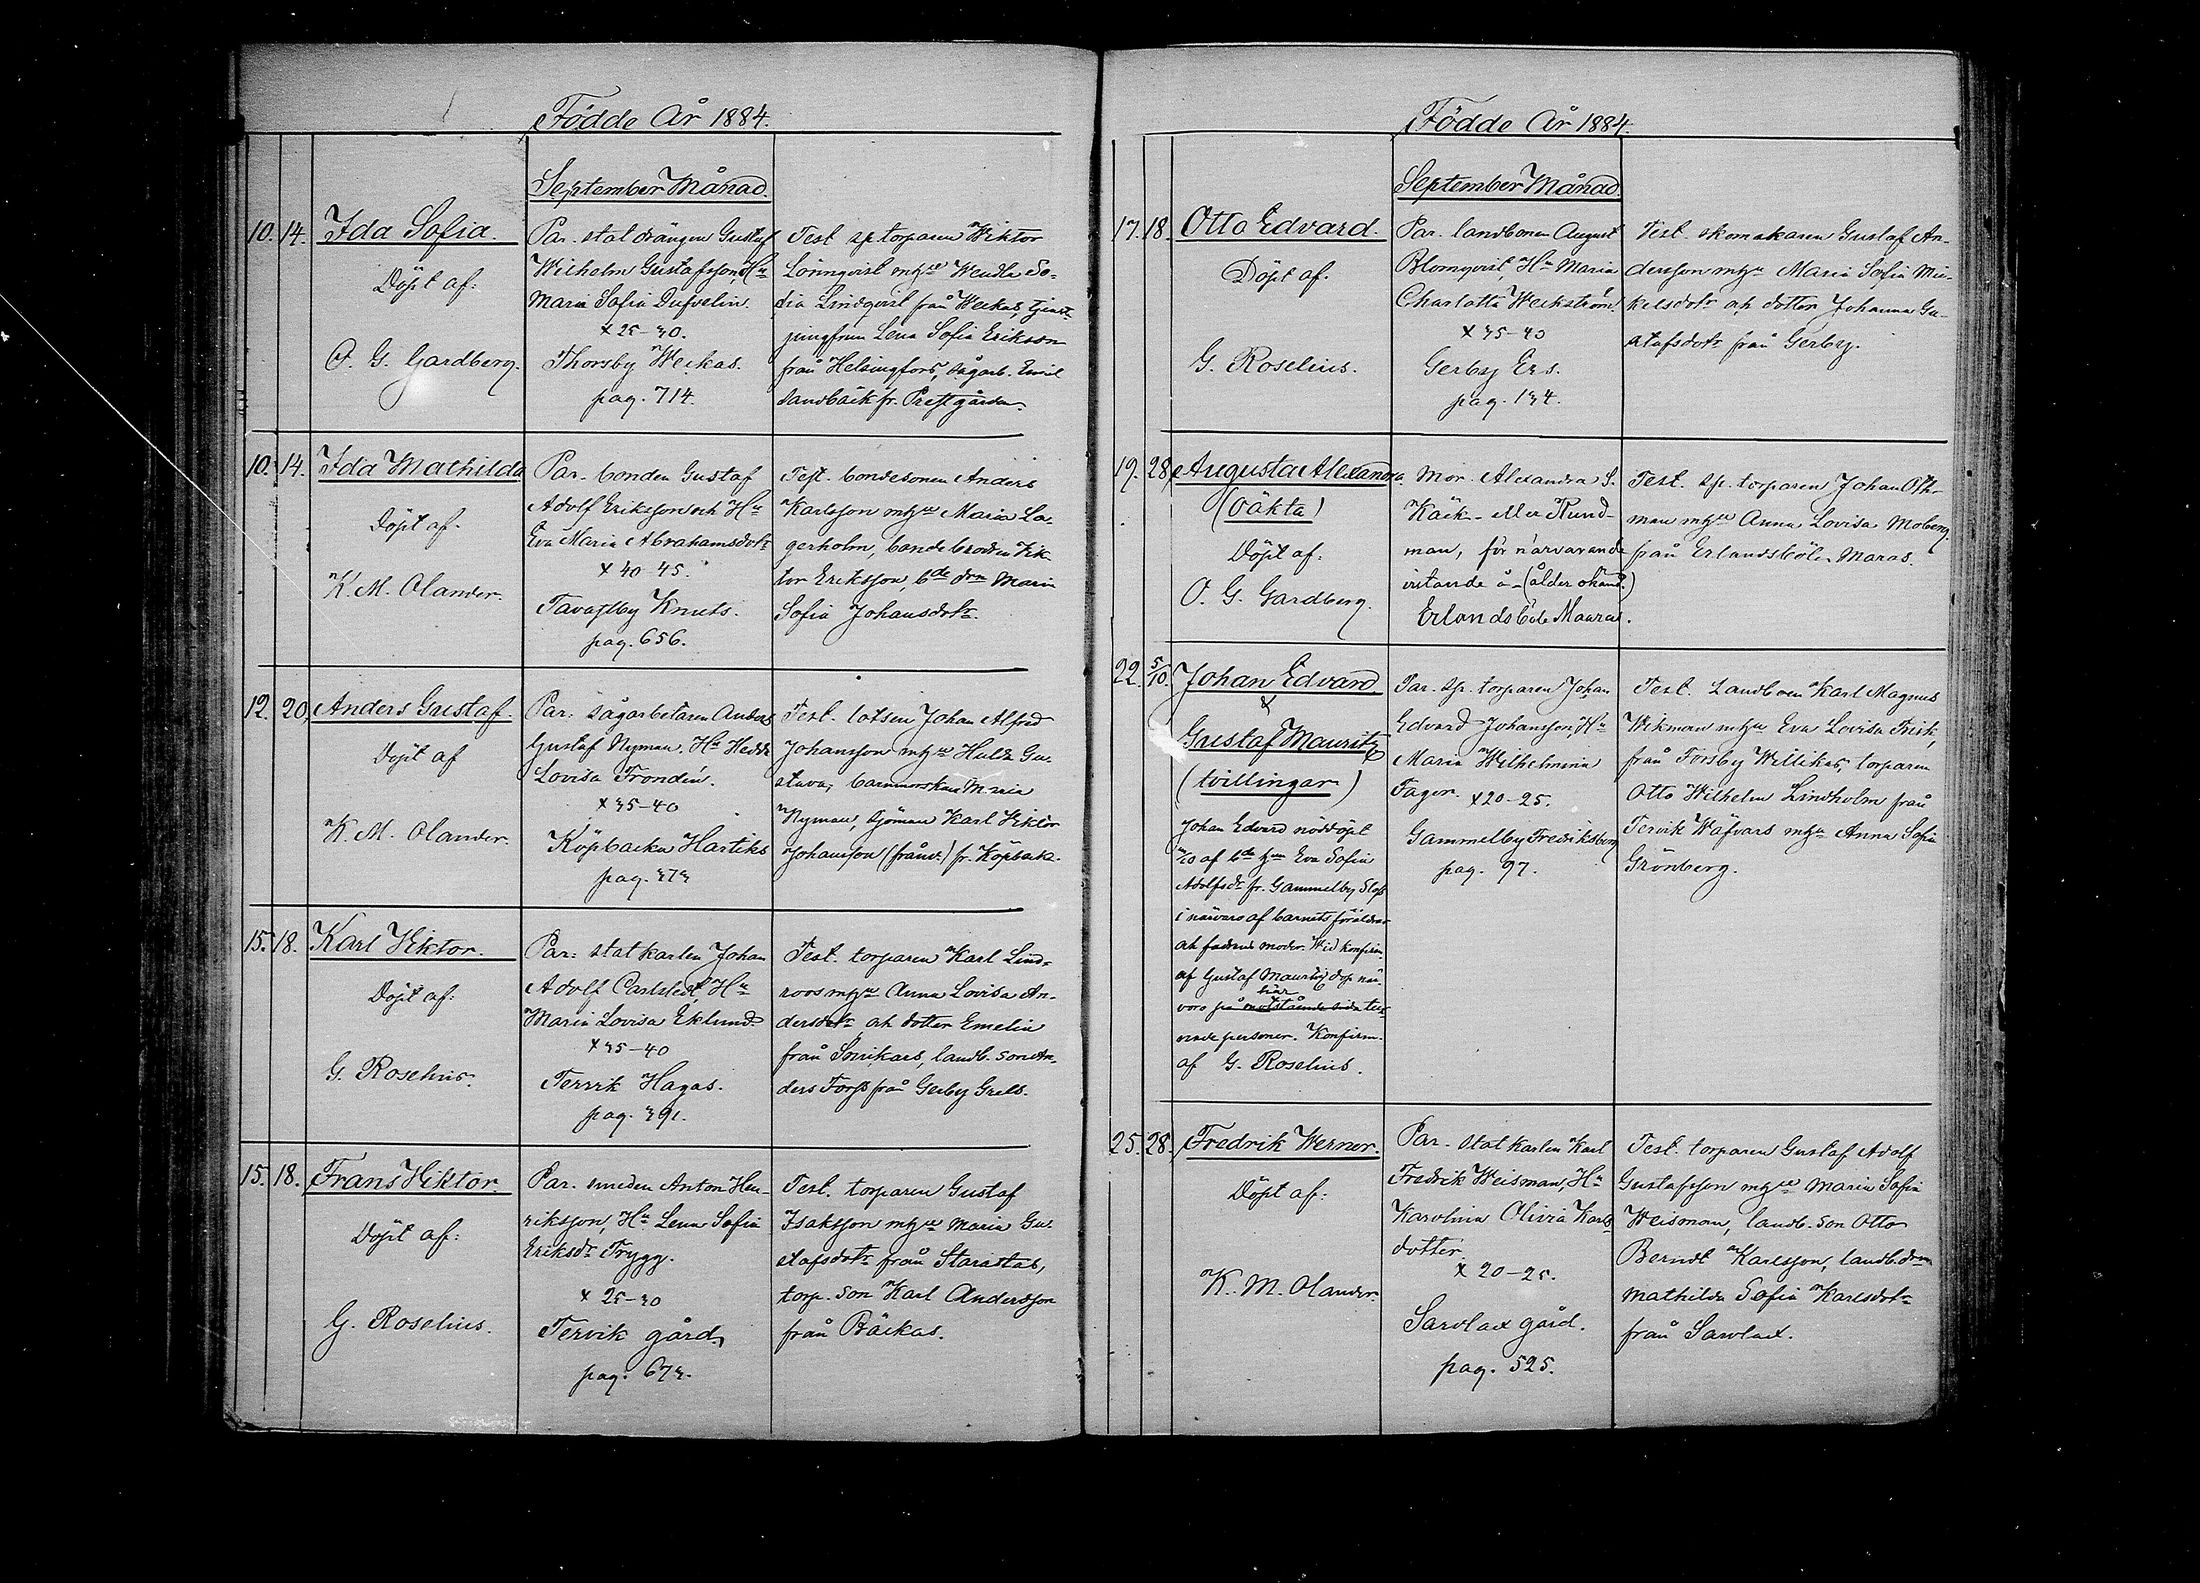 Födde År 1884.
September Månad.
10. 14. Ida Sofia.
Döpt af:
O. G. Gardberg.
Par. statdrängen Gustaf
Wilhelm Gustafsson, Hu
Maria Sofia Dufvelin.
x 25-30.
Thorsby Weckas.
pag. 714.
Test. sp torparen Wiktor
Lönnqvist mhu Wendla So-
fia Lindqvist från Weckas, tjenst-
jungfrun Lena Sofia Erikson
från Helsingfors, sågarb. Emil
Sandbäck fr. Prestgården.
10. 14. Ida Mathilda
Döpt af.
K. M. Olander.
Par. bonden Gustaf
Adolf Eriksson och Hu
Eva Maria Abrahamsdotr
x 40-45.
Tavastby Knuts.
pag. 656.
Test. bondesonen Anders
Karlsson mhu Maria La-
gerholm, bondebrodren Vik-
tor Eriksson, bde drn Maria
Sofia Johansdotr.
12. 20. Anders Gustaf.
Döpt af
K. M. Olander.
Par: sågarbetaren Anders
Gustaf Nyman, Hu Hedda
Lovisa Trondén.
x 35-40
Köpbacka Hartiks
pag. 373
Test. lotsen Johan Alfred
Johansson mhu Hulda Gu-
stava, barnmorskan Maria
Nyman, sjöman Karl Viktor
Johansson (frånv.) fr. Köpback.
15. 18. Karl Viktor.
Döpt af:
G. Roselius.
Par: statkarlen Johan
Adolf Carlstedt, Hu
Maria Lovisa Eklund.
x 35-40
Tervik Hagas.
pag. 391.
Test. torparen Karl Lind-
roos mhu Anna Lovisa An-
dersdotr och dotter Emelia
från Snickars, landb. son An-
ders Forss från Gerby Grels.
15. 18. Frans Viktor.
Döpt af:
G. Roselius.
Par. smeden Anton Hen-
riksson, Hu Lena Sofia
Eriksdr Trygg.
x 25-30
Tervik gård,
pag. 673.
Test. torparen Gustaf
Isaksson mhu Maria Gu-
stafsdotr från Starastas,
torp. son Karl Andersson
från Bäckas.
Födde År 1884.
September Månad.
17. 18. Otto Edvard.
Döpt af.
G. Roselius.
Par. landbonen August
Blomqvist Hu Maria
Charlotta Weckström.
x 35-40
Gerby Ers.
pag. 134.
Test. skomakaren Gustaf An-
dersson mhu Maria Sofia Mi-
kelsdotr och dotter Johanna Gu-
stafsdotr från Gerby.
19. 28. Augusta Alexandra
(oäkta)
Döpt af:
O. G. Gardberg.
Mor. Alexandra S.
Käck- eller Rund-
man, för närvarande
vistande å - (ålder okänd.)
Erlandsböle Maaras.
Test. sp. torparen Johan Öth-
man mhu Anna Lovisa Moberg
från Erlandsböle Maras.
22. 5/10. Johan Edvard
x
Gustaf Mauritz
(tvillingar)
Johan Edvard nöddöpt
af bde hu Eva Sofia
Adolfsdr fr. Gammelby Slaß
i närvaro af barnets föräldrar
och fadrens moder. Wid konfirm.
af Gustaf Mauritz dop när-
här
voro på motstående sida tec-
nade personer. Konfirm.
af G. Roselius.
Par. sp. torparen Johan
Edvard Johansson, Hu
Maria Wilhelmina
Fager. x 20-25.
Gammelby Fredriksberg
pag. 97.
Test. Landboen Karl Magnus
Wikman mhu Eva Lovisa Frisk,
från Forsby Willikas, torparen
Otto Wilhelm Lindholm från
Tervik Wäfvars mhu Anna Sofia
Grönberg.
25. 28. Fredrik Werner.
Döpt af:
K. M. Olander.
Par. statkarlen Karl
Fredrik Weisman, Hu
Karolina Olivia Karls
dotter
x 20-25.
Sarvlax gård.
pag. 525.
Test. torparen Gustaf Adolf
Gustafsson mhu Maria Sofia
Weisman, landb. son Otto
Berndt Karlsson, landb. drn
Mathilda Sofia Karlsdotr
från Sarvlax.